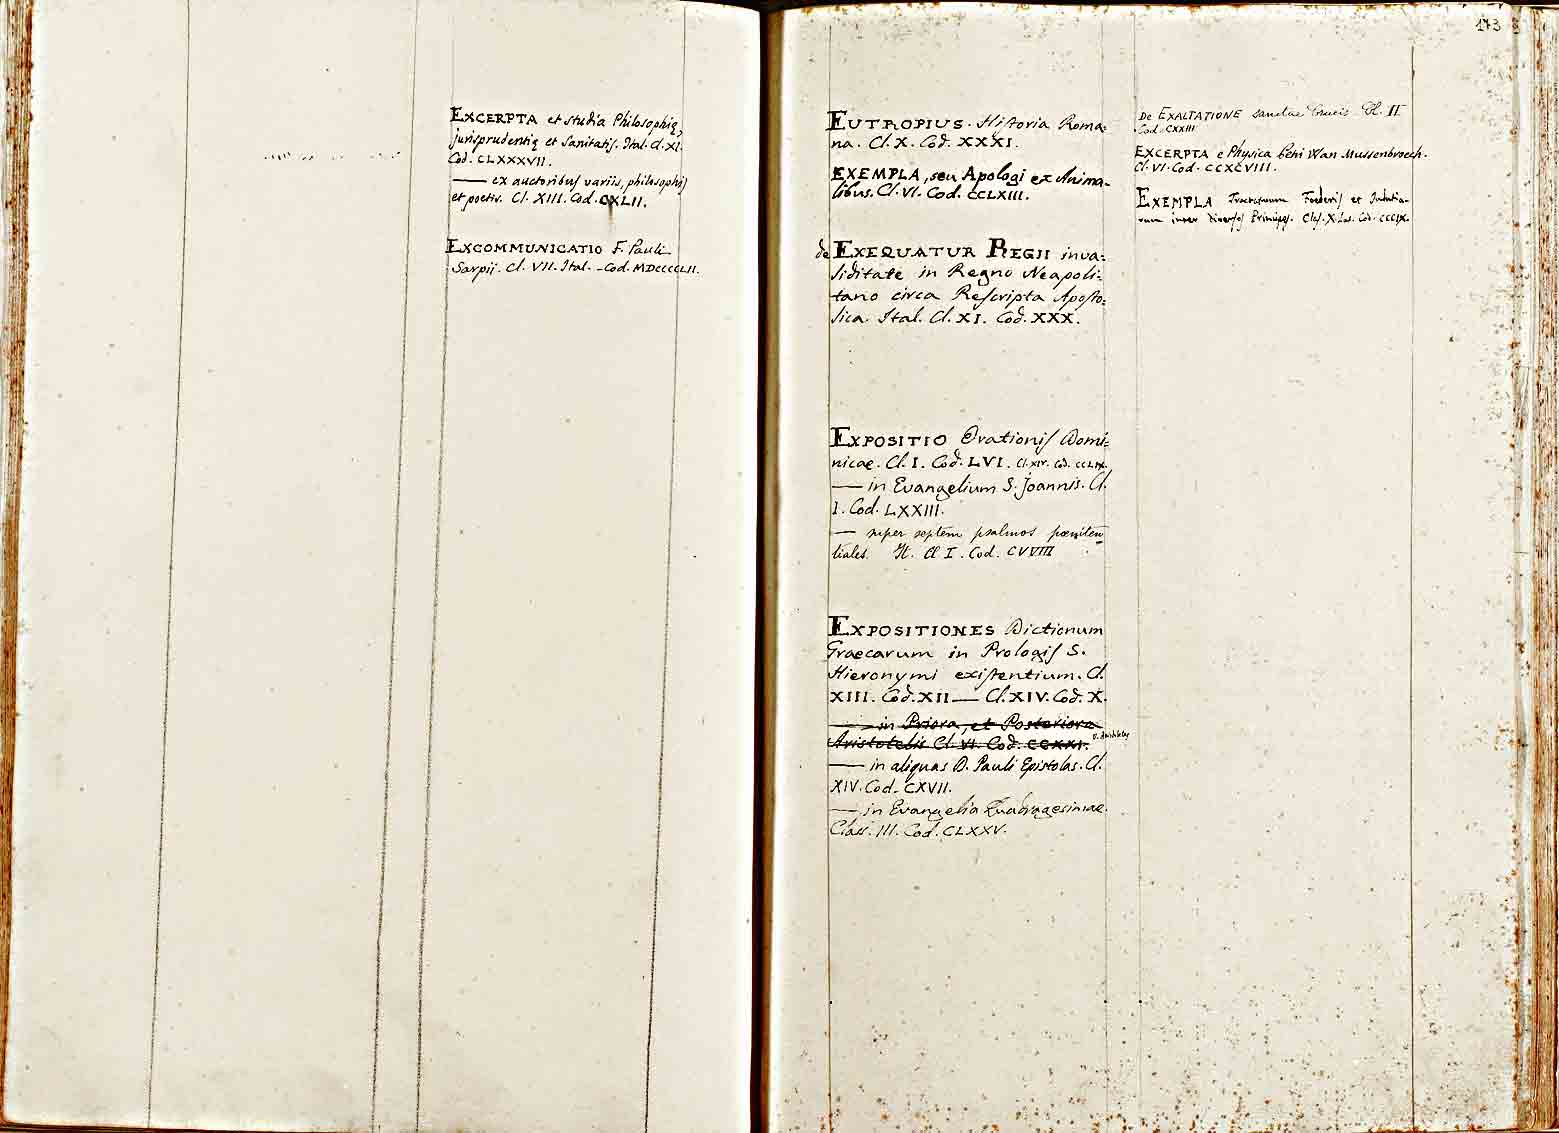 EXCERPTA et studia Philosophię,
jurisprudentię et Sanitatis. Ital. Cl. XI.
Cod. CLXXXVII.
— ex auctoribus variis, philosophis
et poetis. Cl. XIII. Cod. CXLII.
EXCOMMUNICATIO F. Pauli
Sarpii. Cl. VII. Ital. Cod. MDCCCCLII.
173
EUTROPIUS. Historia Roma=
na. Cl. X. Cod. XXXI.
EXEMPLA, seu Apologi ex Anima-
libus. Cl. VI. Cod. CCLXIII.
de EXEQUATUR REGII inva=
liditate in Regno Neapoli=
tano circa Rescripta Aposto=
lica. Ital. Cl. XI. Cod. XXX.
EXPOSITIO Orationis Domi=
nicae. Cl. I. Cod. LVI. Cl. XIV. Cod. CCLIX.
— in Evangelium S. Joannis. Cl.
I. Cod. LXXIII.
— super septem psalmos pœniten=
tiales. It. Cl I. Cod. CVVIII
EXPOSITIONES Dictionum
Graecarum in Prologis S.
Hieronymi existentium. Cl.
XIII. Cod. XII — Cl. XIV. Cod. X.
— in Priora, et Posteriora
Aristotelis Cl. VI. Cod. CCXXI.
— in aliquas D. Pauli Epistolas. Cl.
XIV. Cod. CXVII.
— in Evangelia Quadragesimae.
Class. III. Cod. CLXXV.
De EXALTATIONE sanctae Crucis Cl. II
Cod. CXXIII
EXCERPTA e Physica Petri Wan Mussenbroech.
Cl. VI. Cod. CCXCVIII.
EXEMPLA Tractatuum Foederis et Indutia-
rum inter diversos Principes. Clas. X Lat. Cod. CCCIX.